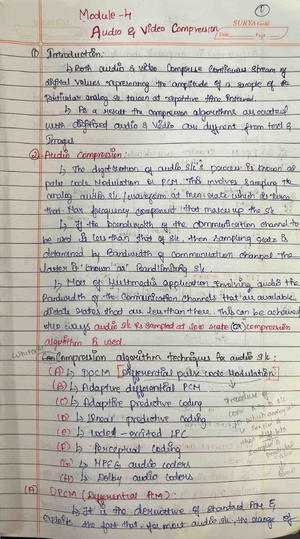 ①
Module-4
SURYA Gold
Date Page
Audio & Video Compression
① Introduction:
↳ Both audio & video comprise continuous stream of
digital values representing the amplitude of a sample of
particular analog is taken at repetitive time interval.
↳ As a result the compression algorithms associated
with digitized audio & video are different from text &
Images
② Audio Compression:
↳ The digitization of audio process is known as
pulse code Modulation or PCM. This involves sampling the
analog audio waveform at min. rate which is twice
that Max frequency component that makes up the
↳ If the bandwidth of the communication channel to
be used is less than that of then sampling rate is
determined by Bandwidth of communication channel. The
latter is known as Bandlimiting
↳ Most of Multimedia application involving audio the
bandwidth of the communication channels that are available
rates that are less than these. This can be achieved
two ways audio is sampled at low rate (OR) compression
algorithm is used.
Compression algorithm techniques for audio
(A) ↳ DPCM [Differential pulse code Modulation]
(B) ↳ Adaptive differential PCM
(C) ↳ Adaptive predictive coding
(D) ↳ linear predictive coding
(E) ↳ code-excited LPC
(F) ↳ Perceptual coding
(G) ↳ MPEG audio coders
(H) ↳ Dolby audio coders
(A) DPCM (Differential PCM):
↳ It is the derivative of standard PCM &
exploits the fact that, for most audio the range of